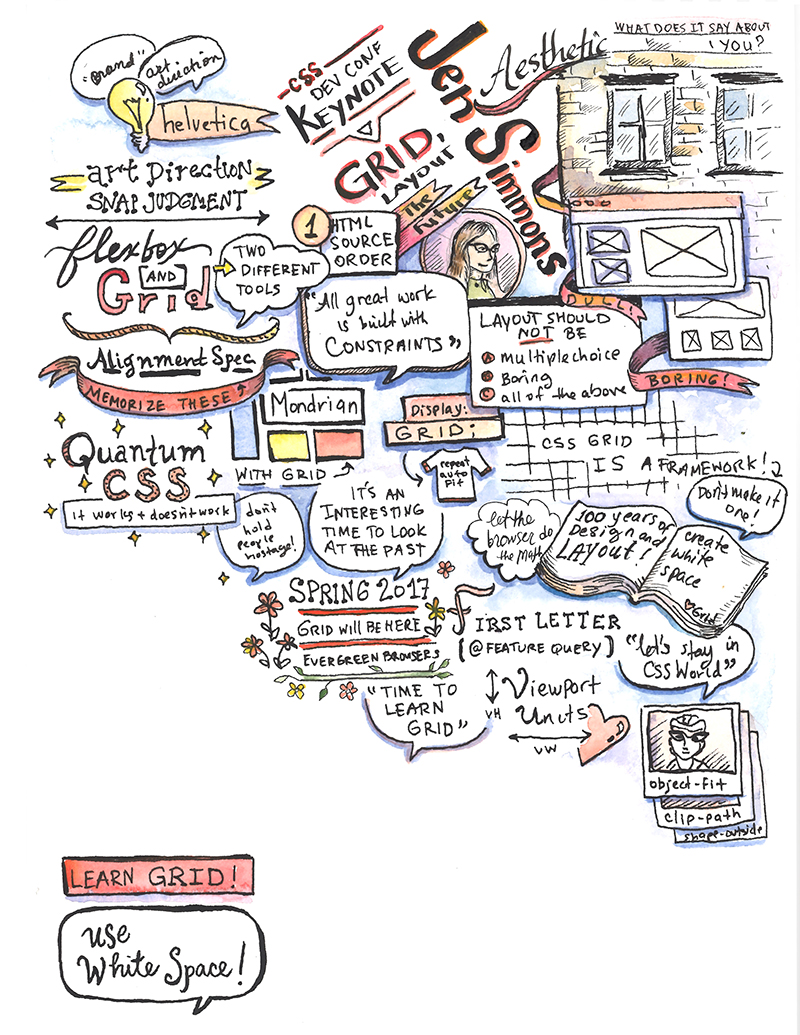 "Brand"
art
direction
helvetica
CSS
DEV CONF
KEYNOTE
GRID,
LAYOUT
The
Future
Jen Simmons
Aesthetic
WHAT DOES IT SAY ABOUT
YOU?
art Direction
SNAP JUDGMENT
flexbox
AND
Grid
TWO
DIFFERENT
TOOLS
1
HTML
SOURCE
ORDER
"All great work
is built with
CONSTRAINTS"
DULL
LAYOUT SHOULD
NOT BE
A multiple choice
B Boring
C all of the above
BORING!
Alignment Spec
MEMORIZE THESE
Mondrian
WITH GRID
Display:
GRID;
repeat
auto
Fit
CSS GRID
IS A FRAMEWORK!
Don't make it
one!
Quantum
CSS
it works + doesn't work
don't
hold
people
hostage!
IT'S AN
INTERESTING
TIME TO LOOK
AT THE PAST
let the
browser do
the math
100 years of
Design and
LAYOUT!
create
white
space
Grid
SPRING 2017
GRID WILL BE HERE
EVERGREEN BROWSERS
"TIME TO
LEARN
GRID"
FIRST LETTER
[@FEATURE QUERY]
"let's stay in
CSS World"
Viewport
Units
VH
VW
object-fit
clip-path
shape-outside
LEARN GRID!
use
White Space!